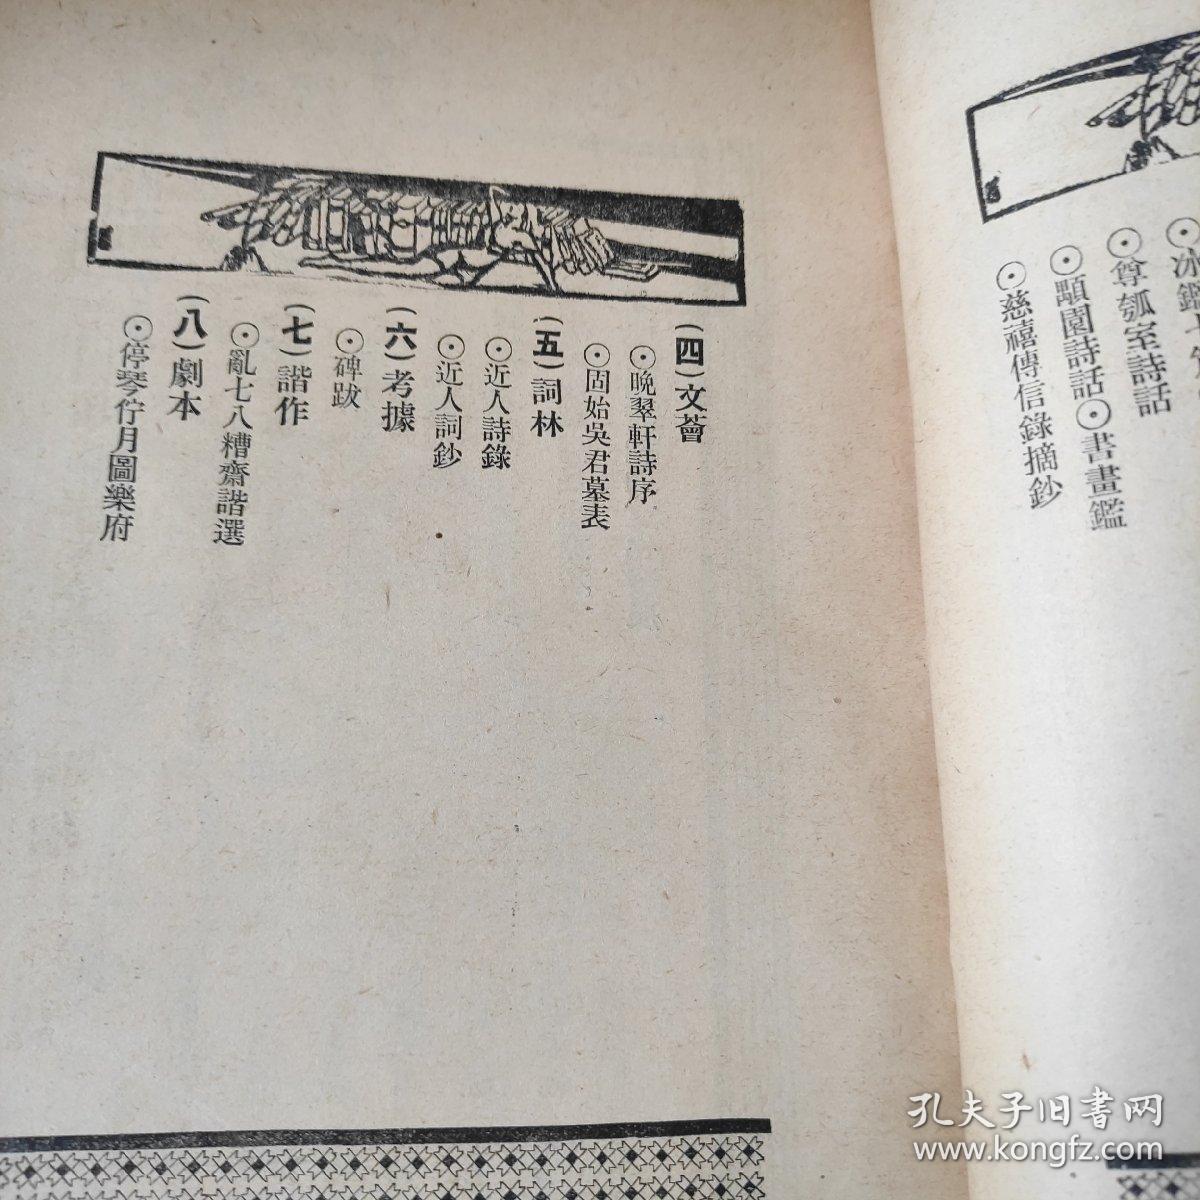 尊瓠室詩話
顒園詩話⊙書畫鑑
慈禧傳信錄摘鈔
(四)文薈
⊙晩翠軒詩序
⊙固始吳君墓表
(五)詞林
⊙近人詩錄
⊙近人詞鈔
(六)考據
⊙碑跋
(七)諧作
⊙亂七八糟齋諧選
(八)劇本
⊙停琴佇月圖樂府
孔夫子旧書网
www.kongfz.com